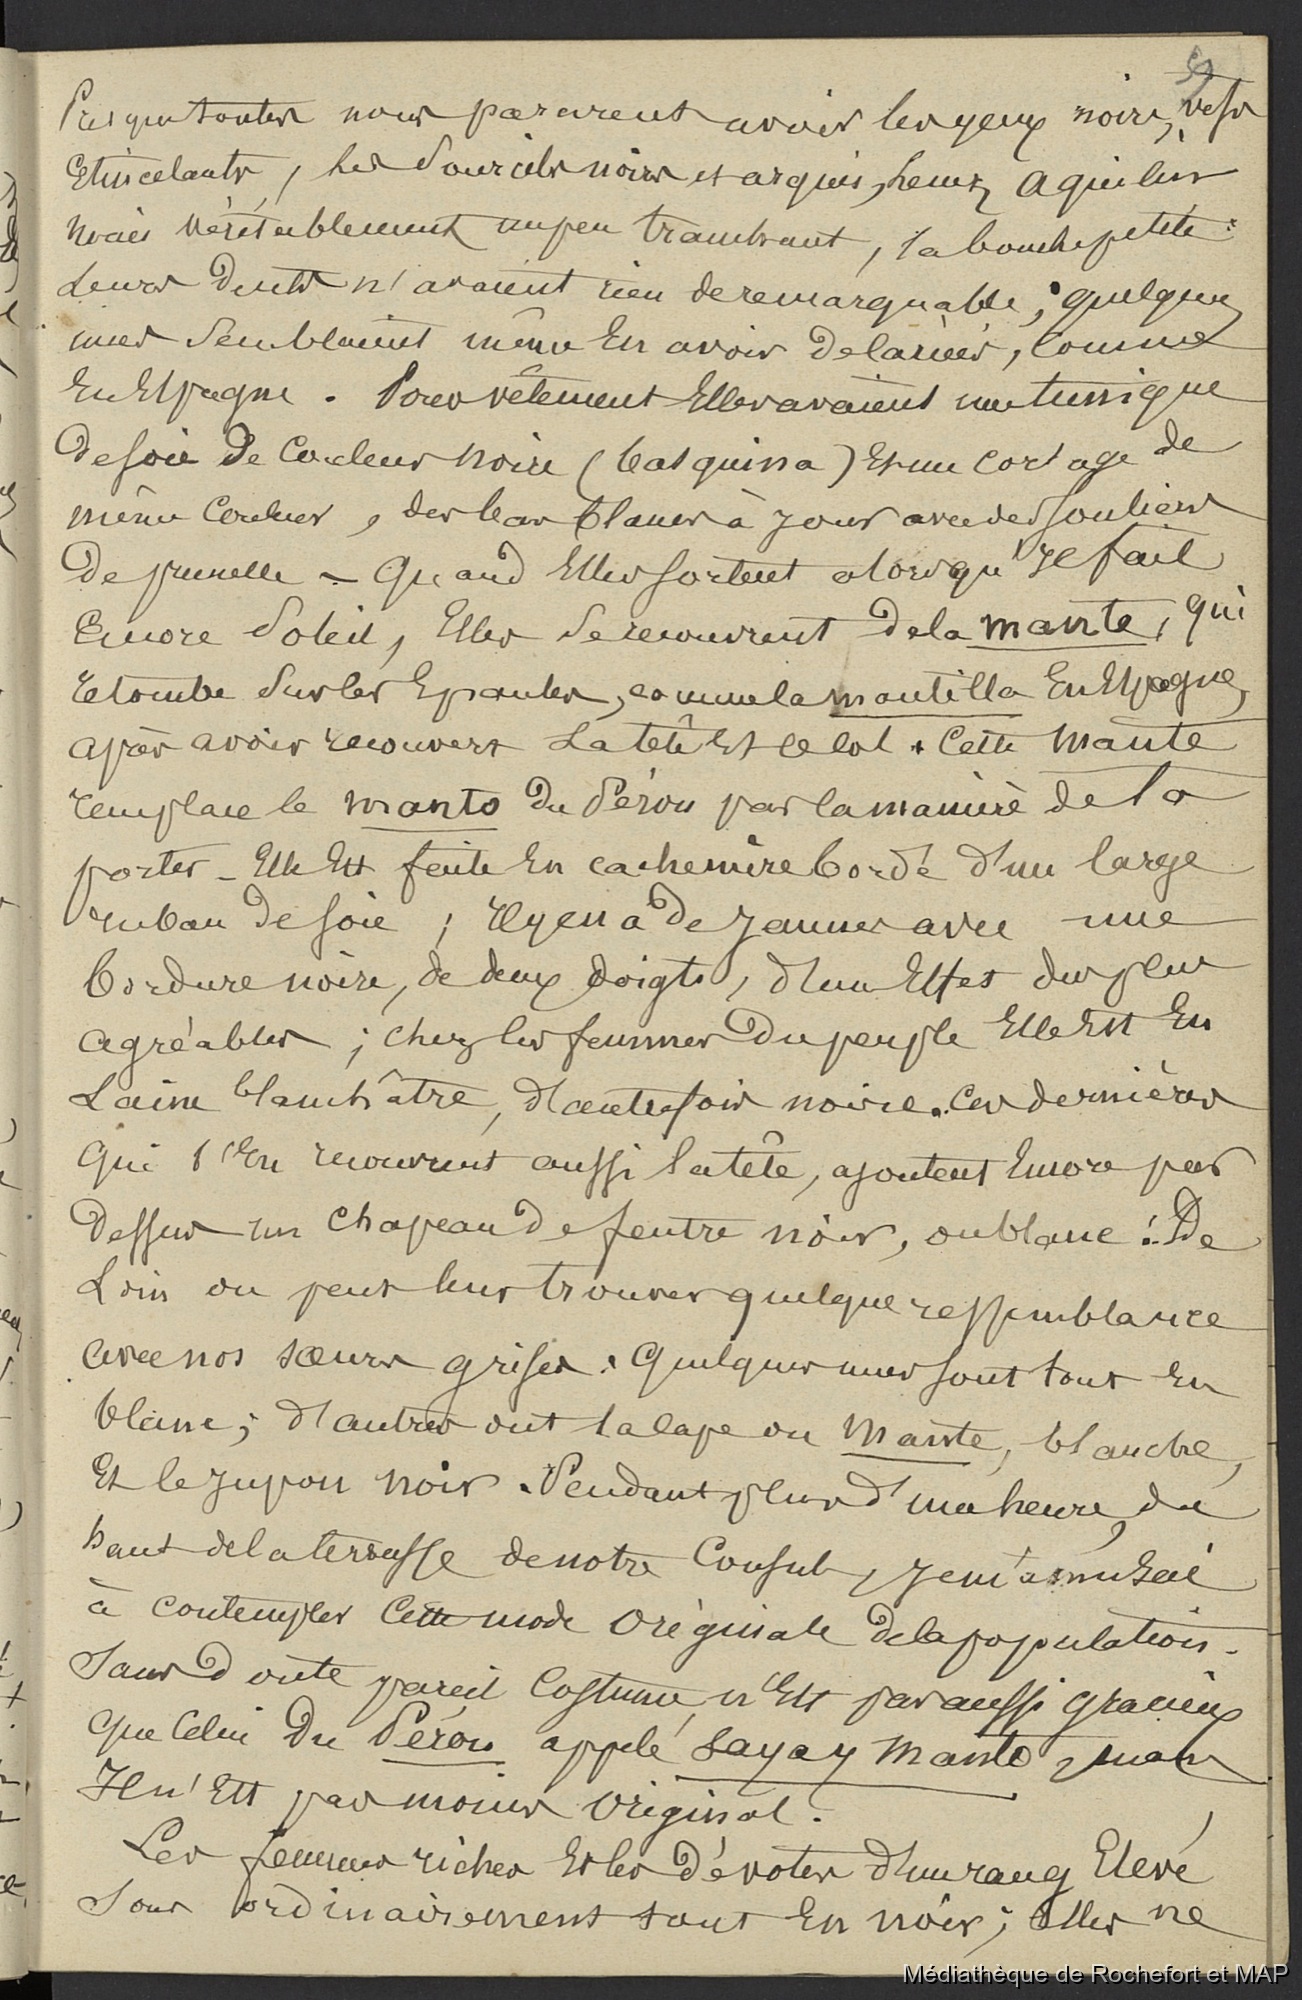 Presque toutes nous parurent avoir les yeux noirs, vifs
Etincelants, les sourcils noirs et arqués, le nez aquilin
mais véritablement un peu tranchant, la bouche petite :
Leurs dents n'avaient rien de remarquable ; quelques
unes semblaient même en avoir de lariées, comme
En Espagne. Pour vêtement Elles avaient une tunique
de soie de couleur noire (basquina) et un corsage de
même couleur, des bas blancs à jour avec des souliers
de prunelle - Quand Elles sortent alors qu'il fait
Encore soleil, Elles se recouvrent de la mante, qui
retombe sur les Epaules, comme la mantilla En Espagne,
après avoir recouvert La tête Et le col. Cette mante
remplace le manto du Pérou par la manière de la
porter - Elle Est faite En cachemire bordé d'un large
ruban de soie ; Il y en a de jaunes avec une
bordure noire, de deux doigts, d'un Effet des plus
agréables ; chez les femmes du peuple Elle Est En
Laine blanchâtre, d'autrefois noire. Ces dernières
qui s'En recouvrent aussi la tête, ajoutent Encore par
dessus un chapeau de feutre noir, ou blanc. De
Loin on peut leur trouver quelque ressemblance
avec nos sœurs grises. Quelques unes sont tout En
blanc ; d'autres ont la cape ou mante, blanche,
Et le jupon noir. Pendant plus d'une heure, du
haut de la terrasse de notre Consul, je m'amusai
à contempler cette mode originale de la population.
Sans doute pareil costume n'Est pas aussi gracieux
que celui du Pérou appelé saya y manto, mais
Il n'Est pas moins original.
Les femmes riches Et les dévotes d'un rang Elevé
sont ordinairement tout En noir ; Elles ne
Médiathèque de Rochefort et MAP